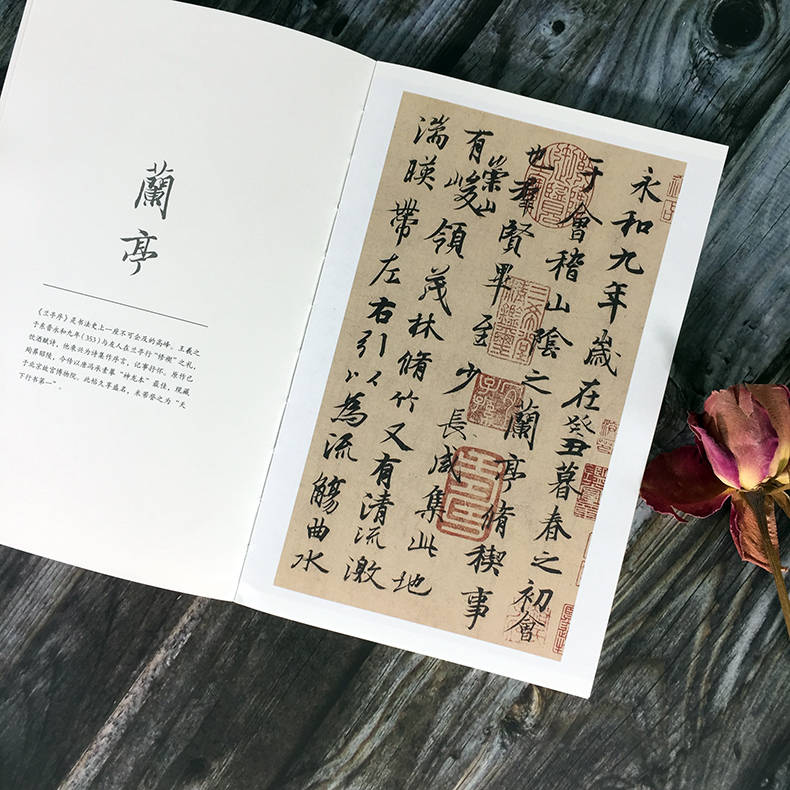 蘭
亭
《兰亭序》是书法史上一座不可企及的高峰。王羲之
于东晋永和九年（353）与友人在兰亭行“修禊”之礼，
饮酒赋诗，他乘兴为诗集作序言，记事抒怀。原作已
殉葬昭陵，今传以唐冯承素摹“神龙本”最佳，现藏
于北京故宫博物院。此帖久享盛名，米芾誉之为“天
下行书第一”。
永和九年歲在癸丑暮春之初會
于會稽山陰之蘭亭脩稧事
也羣賢畢至少長咸集此地
有崇山峻領茂林脩竹又有清流激
湍暎帶左右引以為流觴曲水